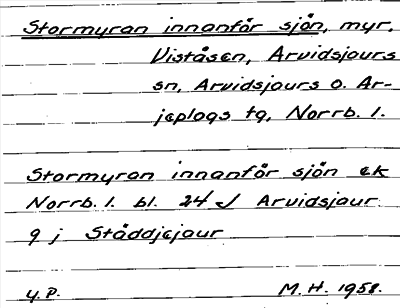 Stormyran innanför sjön, myr,
Viståsen, Arvidsjaurs
sn, Arvidsjaurs o. Ar-
jeplogs tg, Norrb. l.
Stormyran innanför sjön ek
Norrb. l. bl. 24 J Arvidsjaur
9 j Ståddjejaur
U.P. M.H. 1958.